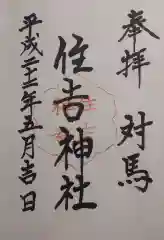 奉拝
対馬
住吉神社
平成二十二年五月吉日